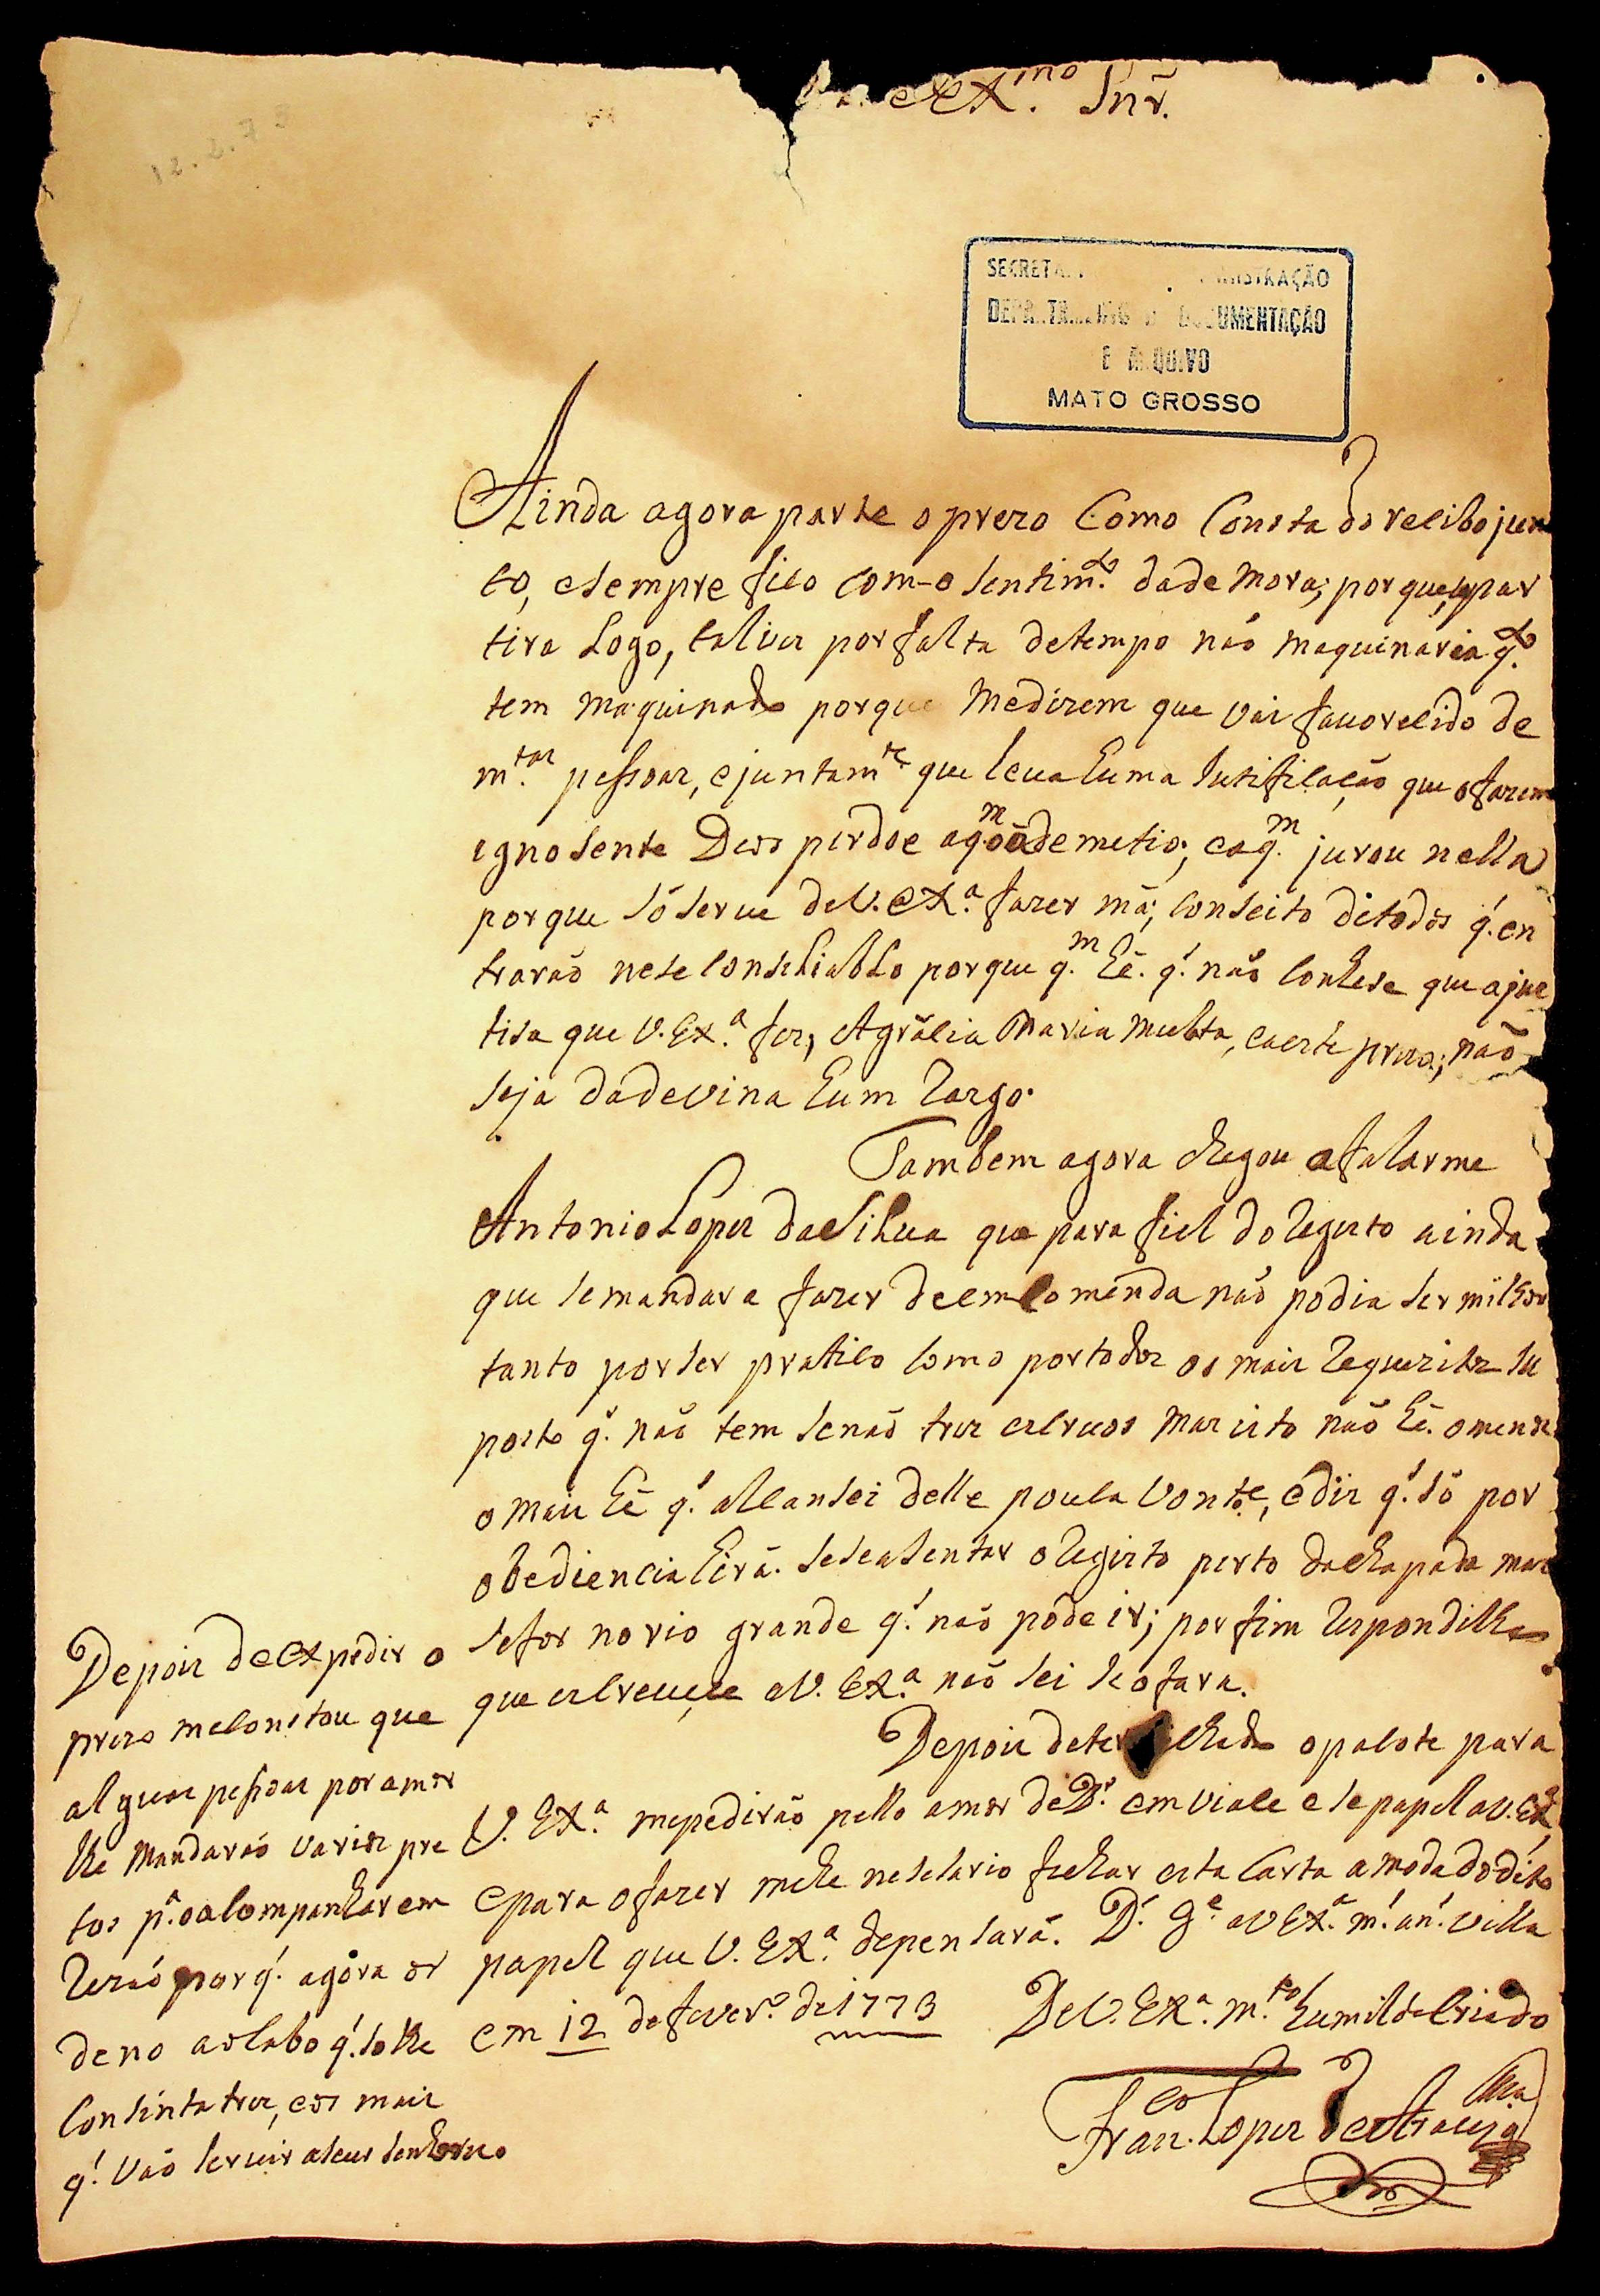 Ex.mo Snr.
12.2.73
MATO GROSSO
E ARQUIVO
Ainda agora parte o prezo Como Consta do recibo jun
to, esempre fico com-o sentim.to dade mora; porque, separ
tira Logo, talvez por falta detempo não maquinaria q.to
tem maquinado porque Medizem que vai favorecido de
m.tas pessoas, ejuntam.te que leva huma Justificação que ofazem
ignosente Deos perdoe aq.m ademetio; eaq.m jurou nella
porque só serve deV. Exa. fazer máo, conseito detodos q. en
trarão nese Conseliabolo porque q.m hé. q. não Conhese que ajus
tisa que V. Ex.a fez, Agrácia Maria Mulata, eaeste prezo, não
seja dadevina hum rasgo.
Tambem agora chegou afalarme
Antonio Lopes daSilva que para fiel do Registo ainda
que semandara fazer deemcomenda não podia ser milhor
tanto por ser pratico como por todos os mais requezitos su
posto q. não tem senão tres escravos mas isto não hé. omenos
omais hé q. alcansei delle pouca Vont.e, ediz q. só por
obediencia hirá. seseasentar oRegisto perto dachapada mas
sefor norio grande q. não pode ir; por fim respondilhe
que escreveçe aV. Ex.a não sei seofara.
Depois deter fechado opacote para
V. Ex.a mepedirão pello amor deD.s emviace ese papel aV. Ex.a
epara ofazer mehe nesesario fechar esta Carta amoda dodito
papel que V. Ex.a despensará. D.s G.e aV Ex.a m.s an.s Villa
em 12 de fever.o de 1773
DeV. Ex.a m.to humilde Criado
Fran.co Lopes de Araujo
Depois deexpedir o
prezo meconstou que
alguas pessoas por amor
lhe Mandarão varios pre
tos p.a oacompanharem
Rezão porq. agora or
deno aocabo q. so lhe
Consinta tres, eos mais
q. vão servir aseus senhores